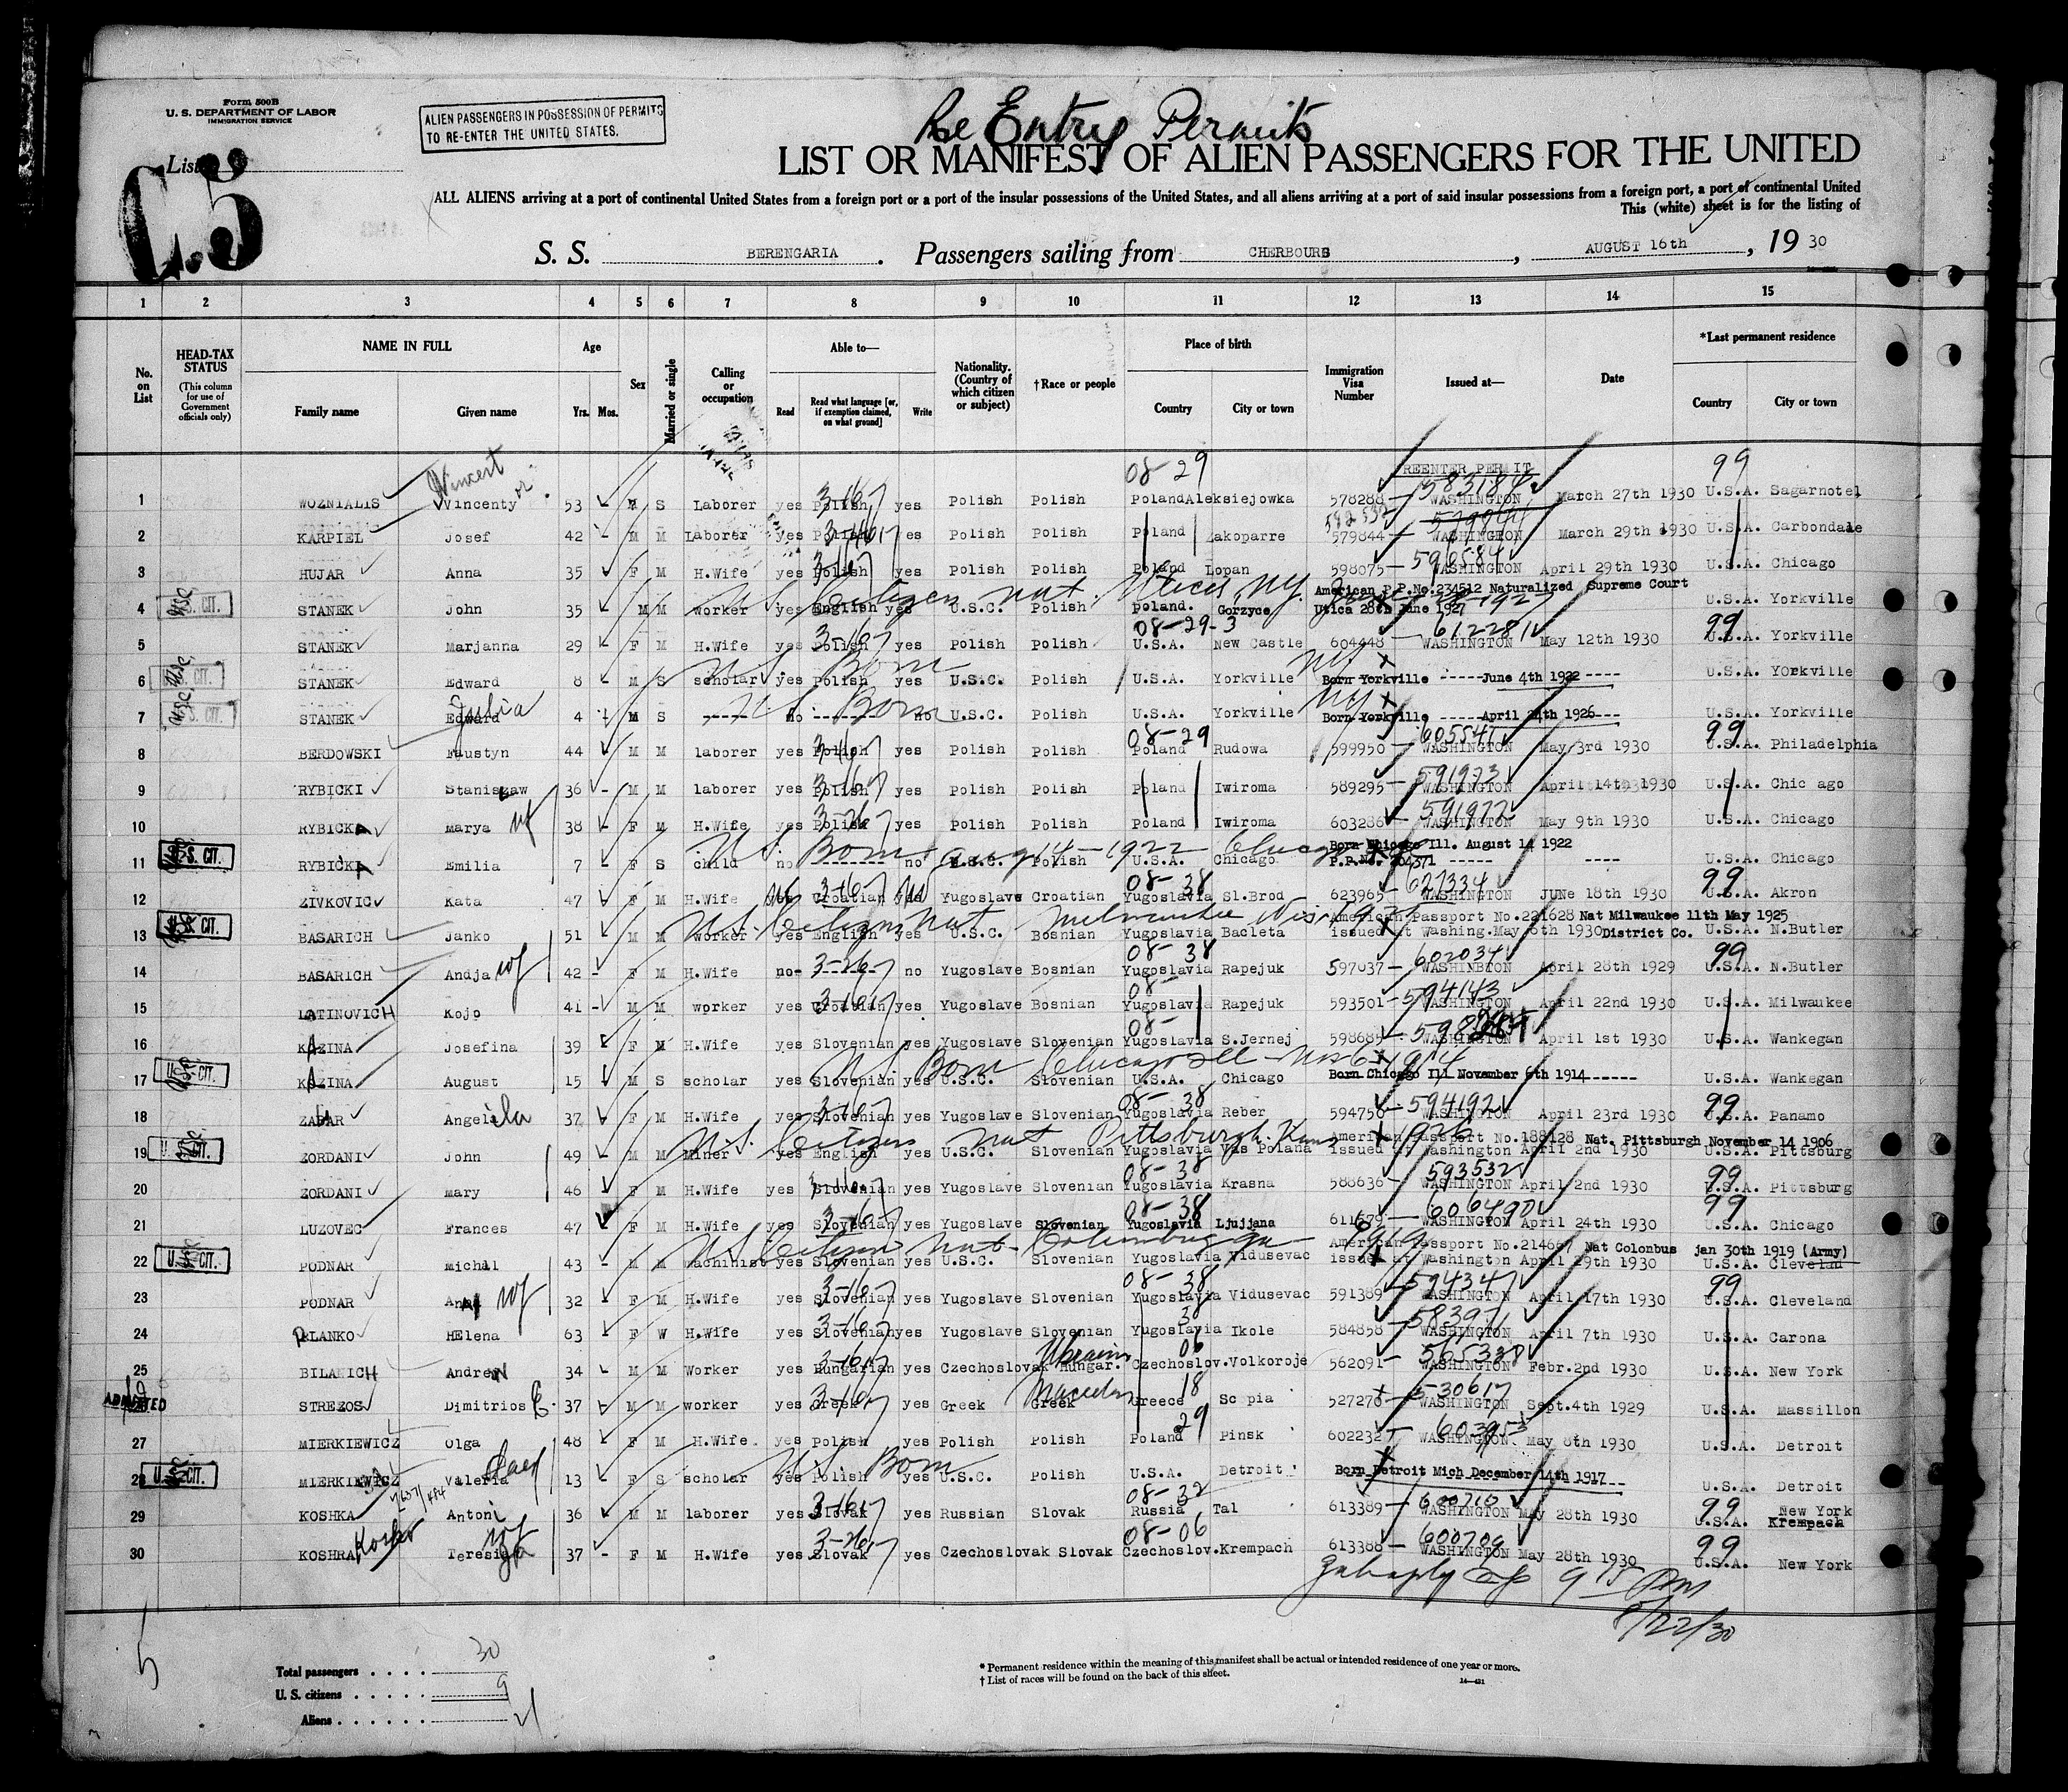 Form 500B
U. S. DEPARTMENT OF LABOR
IMMIGRATION SERVICE
ALIEN PASSENGERS IN POSSESSION OF PERMITS
TO RE-ENTER THE UNITED STATES.
Re Entry Permits
List
C.5
LIST OR MANIFEST OF ALIEN PASSENGERS FOR THE UNITED
ALL ALIENS arriving at a port of continental United States from a foreign port or a port of the insular possessions of the United States, and all aliens arriving at a port of said insular possessions from a foreign port, a port of continental United
This (white) sheet is for the listing of
S. S. BERENGARIA. Passengers sailing from CHERBOURG, AUGUST 16th, 19 30
1 2 3 4 5 6 7 8 9 10 11 12 13 14 15
No. on List
HEAD-TAX STATUS (This column for use of Government officials only)
NAME IN FULL Family name Given name
Age Yrs. Mos.
Sex
Married or single
Calling or occupation
Able to— Read Read what language [or, if exemption claimed, on what ground] Write
Nationality. (Country of which citizen or subject)
† Race or people
Place of birth Country City or town
Immigration Visa Number
Issued at—
Date
*Last permanent residence Country City or town
08-29 REENTER PERMIT 99
Vincent or
1 WOZNIALIS Vincenty 53 S Laborer yes Polish yes Polish Polish Poland Aleksiejowka 578288 583184 WASHINGTON March 27th 1930 U.S.A. Sagarnotel
2 KARPIEL Josef 42 M M Laborer yes Polish yes Polish Polish Poland Zakoparre 579844 WASHINGTON March 29th 1930 U.S.A. Carbondale
3 HUJAR Anna 35 F M H.Wife yes Polish yes Polish Polish Poland Lopan 598075 WASHINGTON April 29th 1930 U.S.A. Chicago
U.S. Citizen nat. Utica, N.Y. American P.P.No.234512 Naturalized Supreme Court
4 STANEK John 35 M M worker yes English yes U.S.C. Polish Poland. Gorzyce Utica 28th June 1927 U.S.A. Yorkville
08-29-3 612281 99
5 STANEK Marjanna 29 F M H.Wife yes Polish yes Polish Polish U.S.A. New Castle 604448 WASHINGTON May 12th 1930 U.S.A. Yorkville
U.S. Born NY
6 STANEK Edward 8 M S scholar yes Polish yes U.S.C. Polish U.S.A. Yorkville Born Yorkville -----June 4th 1922 ---- U.S.A. Yorkville
Julia U.S. Born NY
7 STANEK Edward 4 M S ----- no ------- no U.S.C. Polish U.S.A. Yorkville Born Yorkville -----April 24th 1926--- U.S.A. Yorkville
08-29 605541 99
8 BERDOWSKI Faustyn 44 M M laborer yes Polish yes Polish Polish Poland Rudowa 599950 WASHINGTON May 3rd 1930 U.S.A. Philadelphia
591973
9 RYBICKI Staniszaw 36 M M laborer yes Polish yes Polish Polish Poland Iwiroma 589295 WASHINGTON April 14th 1930 U.S.A. Chic ago
591972
10 RYBICKA Marya wf 38 F M H.Wife yes Polish yes Polish Polish Poland Iwiroma 603286 WASHINGTON May 9th 1930 U.S.A. Chicago
U.S. Born Aug 14-1922 Chicago Born Chicago Ill. August 14 1922
11 U.S. CIT. RYBICKA Emilia 7 F S child no ------- no U.S.C. Polish U.S.A. Chicago ----- ---- U.S.A. Chicago
08-38 627334 99
12 ZIVKOVIC Kata 47 F M H.Wife Croatian Yugoslave Croatian Yugoslavia Sl.Brod 623965 WASHINGTON JUNe 18th 1930 U.S.A. Akron
U.S. Citizen Nat Milwaukee Wis American Passport No.221628 Nat Milwaukee 11th May 1925
13 U.S. CIT. BASARICH Janko 51 M M worker yes English yes U.S.C. Bosnian Yugoslavia Bacleta issued at Washing.May 6th 1930 District Co. U.S.A. N.Butler
08-38 602034 99
14 BASARICH Andja wf 42 F M H.Wife no ------ no Yugoslave Bosnian Yugoslavia Rapejuk 597037 WASHINBTON April 28th 1929 U.S.A. N.Butler
08- 594143
15 LATINOVICH Kojo 41 M M worker yes Croatian yes Yugoslave Bosnian Yugoslavia Rapejuk 593501 WASHINGTON April 22nd 1930 U.S.A. Milwaukee
08-
16 KOZINA Josefina 39 F M H.Wife yes Slovenian yes Yugoslave Slovenian Yugoslavia S.Jernej 598685 WASHINGTON April 1st 1930 U.S.A. Wankegan
U.S. Born Chicago Ill - Nov 6-1914
17 U.S. CIT. KOZINA August 15 M S scholar yes Slovenian yes U.S.C. Slovenian U.S.A. Chicago Born Chicago Ill November 6th 1914------ U.S.A. Wankegan
08-38 594192 99
18 ZABAR Angela 37 F M H.Wife yes Slovenian yes Yugoslave Slovenian Yugoslavia Reber 594756 WASHINGTON April 23rd 1930 U.S.A. Panamo
U.S. Citizen nat Pittsburgh, Kans American Passport No.188128 Nat. Pittsburgh November 14 1906
19 U.S. CIT. ZORDANI John 49 M M Miner yes English yes U.S.C. Slovenian Yugoslavia Vas Polana issued at Washington April 2nd 1930 U.S.A. Pittsburg
08-38 593532 99
20 ZORDANI Mary 46 F M H.Wife yes Slovenian yes Yugoslave Slovenian Yugoslavia Krasna 588636 WASHINGTON April 2nd 1930 U.S.A. Pittsburg
08-38 606490 99
21 LUZOVEC Frances 47 F M H.Wife yes Slovenian yes Yugoslave Slovenian Yugoslavia Ljujjana 611679 WASHINGTON April 24th 1930 U.S.A. Chicago
U.S. Citizen Nat- Columbus Ga - 1919 American Passport No.214667 Nat Colonbus jan 30th 1919 (Army)
22 U.S. CIT. PODNAR Michal 43 M M machinist yes Slovenian yes U.S.C. Slovenian Yugoslavia Vidusevac issued at Washington April 29th 1930 U.S.A. Cleveland
08-38 594347 99
23 PODNAR Anna wf 32 F M H.Wife yes Slovenian yes Yugoslave Slovenian Yugoslavia Vidusevac 591389 WASHINGTON April 17th 1930 U.S.A. Cleveland
38 583971
24 PLANKO HElena 63 F W H.Wife yes Slovenian yes Yugoslave Slovenian Yugoslavia Ikole 584858 WASHINGTON April 7th 1930 U.S.A. Carona
06 565338
25 BILANICH Andrew 34 M M Worker yes Hungarian yes Czechoslovak Hungar. Czechoslov. Volkoroje 562091 WASHINGTON Febr.2nd 1930 U.S.A. New York
18 530617
ADMITTED STREZOS Dimitrios 37 M M worker yes Greek yes Greek Greek Greece Sc pia 527276 WASHINGTON Sept.4th 1929 U.S.A. Massillon
29
27 MIERKIEWICZ Olga 48 F M H.Wife yes Polish yes Polish Polish Poland Pinsk 602232 WASHINGTON May 8th 1930 U.S.A. Detroit
U.S. Born
28 U.S. CIT. MIERKIEWICZ Valeria 13 F S scholar yes Polish yes U.S.C. Polish U.S.A. Detroit Born Detroit Mich December 14th 1917 U.S.A. Detroit
08-32 600710 99
29 KOSHKA Antoni 36 M M laborer yes Slovak yes Russian Slovak Russia Tal 613389 WASHINGTON May 28th 1930 U.S.A. New York
Krempach
08-06 600709 99
30 KOSHRA Teresia wf 37 F M H.Wife yes Slovak yes Czechoslovak Slovak Czechoslov. Krempach 613388 WASHINGTON May 28th 1930 U.S.A. New York
9 15 PM
8/22/30
5
Total passengers . . . . 30
U. S. citizens . . . . . 9
Aliens . . . . . . 21
* Permanent residence within the meaning of this manifest shall be actual or intended residence of one year or more.
† List of races will be found on the back of this sheet.
14—431